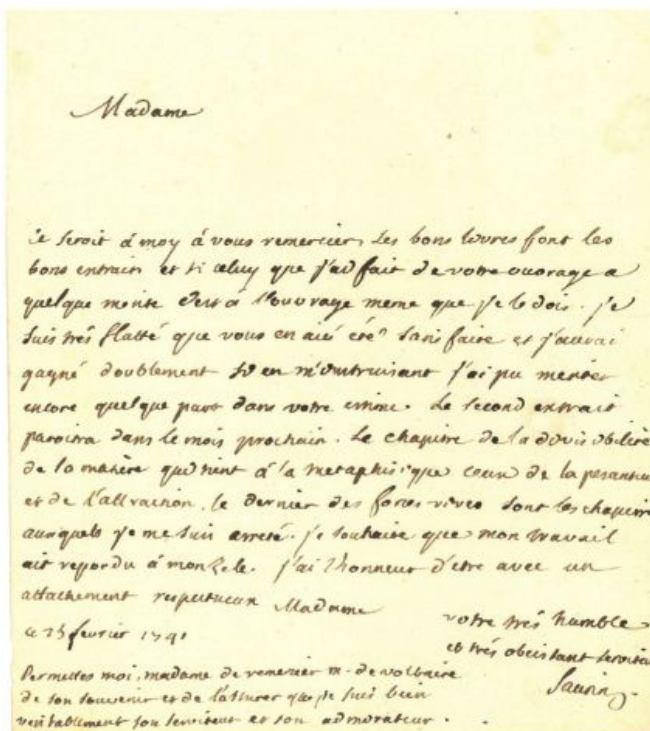 Madame
ce seroit à moy à vous remercier, les bons livres font les
bons extraits et si celuy que j'ai fait de votre ouvrage a
quelque merite c'est à l'ouvrage meme que je le dois. je
suis très flatté que vous en aiés été satisfaite et j'aurai
gagné doublement si en m'instruisant j'ai pu meriter
encore quelque part dans votre estime. Le second extrait
paroitra dans le mois prochain. Le chapitre de la divisibilité
de la matière qui tient à la metaphisique ceux de la pesanteur
et de l'attraction, le dernier des forces vives sont les chapitres
auxquels je me suis arreté. je souhaite que mon travail
ait repondu à mon zele. j'ai l'honneur d'etre avec un
attachement respectueux Madame
votre très humble
et très obeissant serviteur
Saurin
ce fevrier 1741
Permettes moi, madame de remercier m. de voltaire
de son souvenir et de l'assurer que je suis bien
veritablement son serviteur et son admirateur.